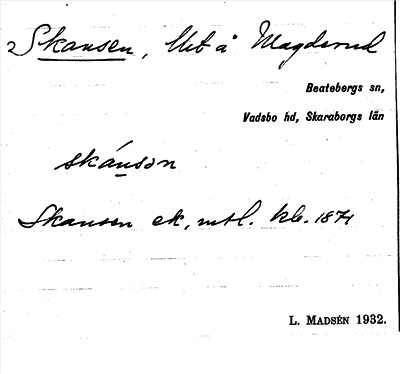 2 Skansen, Utb å Magderud
Beatebergs sn,
Vadsbo hd, Skaraborgs län
skánsən
Skansen ek, mtl. kb. 1871
L. MADSÉN 1932.